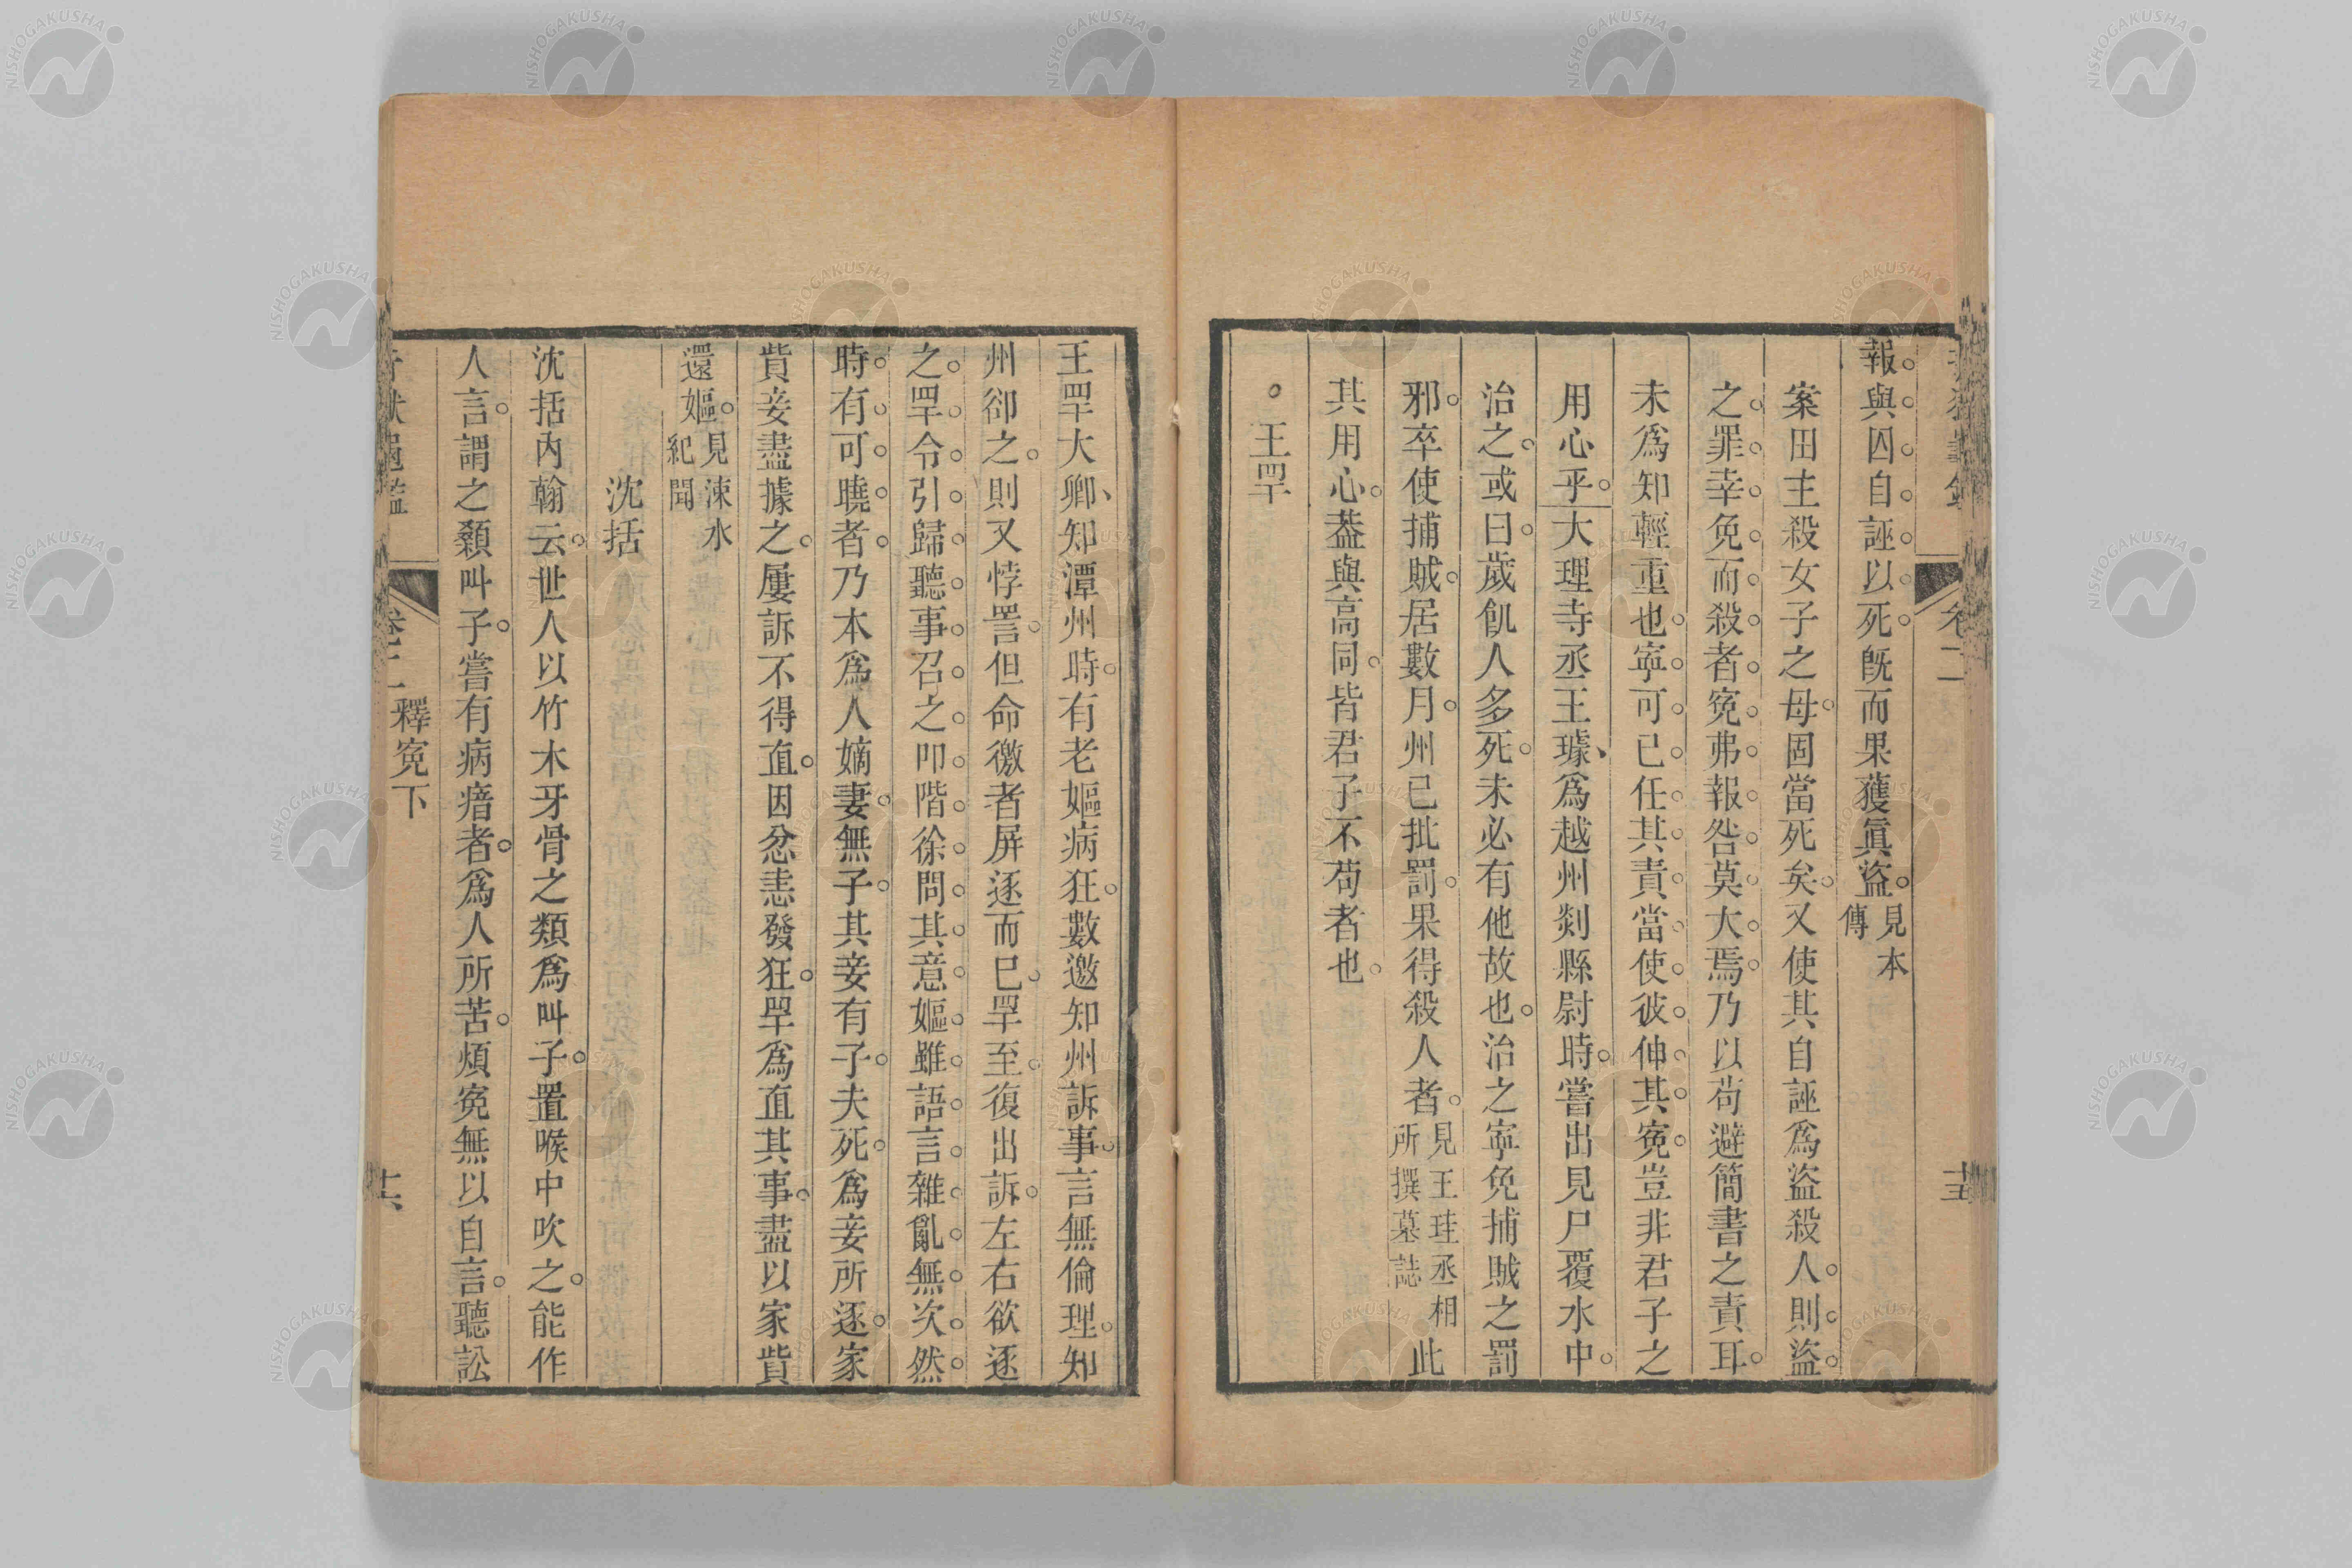 報與囚自誣以死旣而果獲眞盜見本傳
案田主殺女子之母固當死矣又使其自誣爲盜殺人則盜
之罪幸免而殺者寃弗報咎莫大焉乃以苟避簡書之責耳
未爲知輕重也寧可已任其責當使彼伸其寃豈非君子之
用心乎大理寺丞王璩爲越州剡縣尉時嘗出見尸覆水中
治之或曰歲飢人多死未必有他故也治之寧免捕賊之罰
邪卒使捕賊居數月州已批罰果得殺人者見王珪丞相所撰墓誌此
其用心葢與高同皆君子不苟者也
王罕
卷二
十五
王罕大卿知潭州時有老嫗病狂數邀知州訴事言無倫理知
州卻之則又悖詈但命徼者屏逐而已罕至復出訴左右欲逐
之罕令引歸聽事召之叩階徐問其意嫗雖語言雜亂無次然
時有可曉者乃本爲人嫡妻無子其妾有子夫死爲妾所逐家
貲妾盡據之屢訴不得直因忿恚發狂罕爲直其事盡以家貲
還嫗見涑水紀聞
沈括
沈括內翰云世人以竹木牙骨之類爲叫子置喉中吹之能作
人言謂之顙叫子嘗有病瘖者爲人所苦煩寃無以自言聽訟
卷二
釋寃下
十六
NISHOGAKUSHA